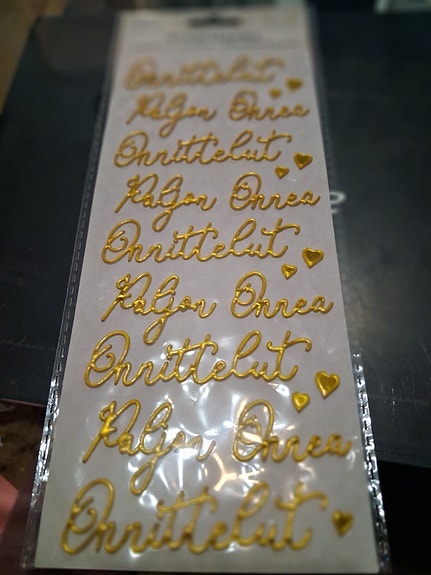 Onnittelut
Paljon Onnea
Onnittelut
Paljon Onnea
Onnittelut
Paljon Onnea
Onnittelut
Paljon Onnea
Onnittelut